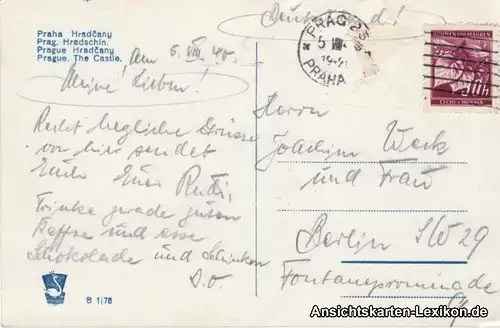 Praha Hradčany
Prag. Hradschin.
Prague Hradčany
Prague. The Castle.
Am 5. VIII. 40.
Meine Lieben!
Recht herzliche Grüsse
von hier sendet
Euch Euer Rudi,
Trinke gerade guten
Kaffee und esse
Schokolade und Schinken
D.O.
B 1/78
Deutschland!
PRAG 25
5 VIII
PRAHA
BÖHMEN UND MÄHREN
ČECHY A MORAVA
Herrn
Joachim Weck
und Frau
Berlin SW 29
Fontanepromenade
Ansichtskarten-Lexikon.de